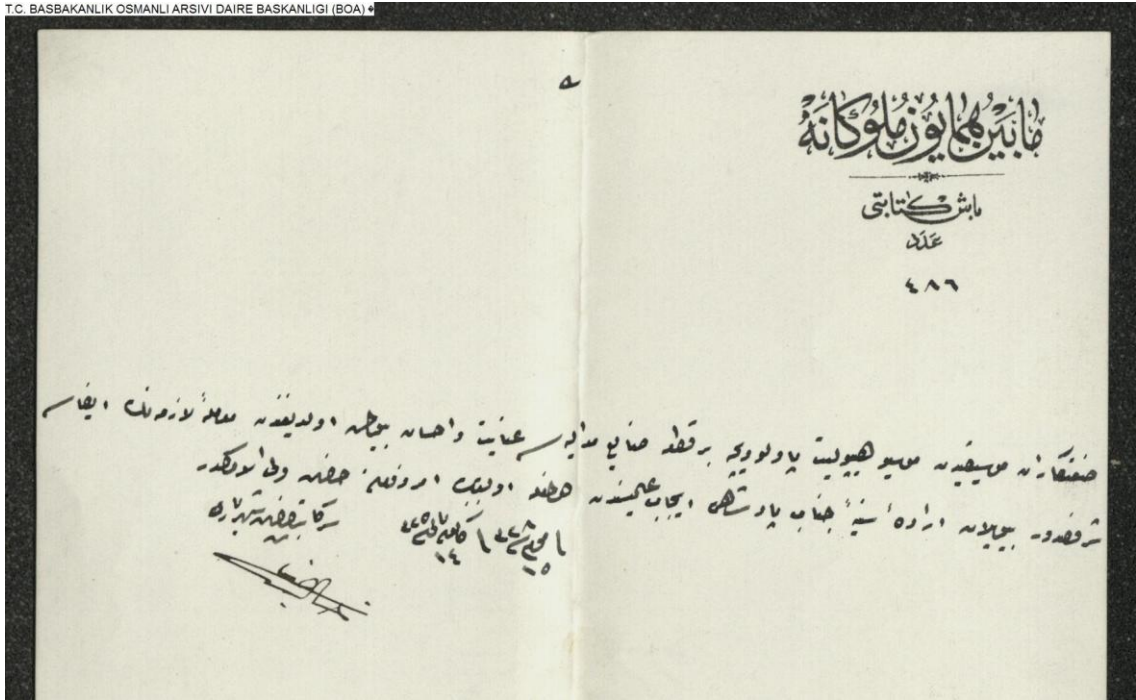 T.C. BASBAKANLIK OSMANLI ARSIVI DAIRE BASKANLIGI (BOA) �
مابين همايون ملوكانه
باش كتابتى
عدد
٤٨٦
موسيو هيپوليت پاولوويچه بر قطعه صنايع مداليه سى عنايت و احسان بيورلمش اولديغندن معامله لازمه نك ايفاسى
بيوريلان اراده سنيه جناب پادشاهى ايجاب عاليسندن اولمغله اولبابده امر و فرمان حضرت ولى الامركدر
سركاتب حضرت شهريارى